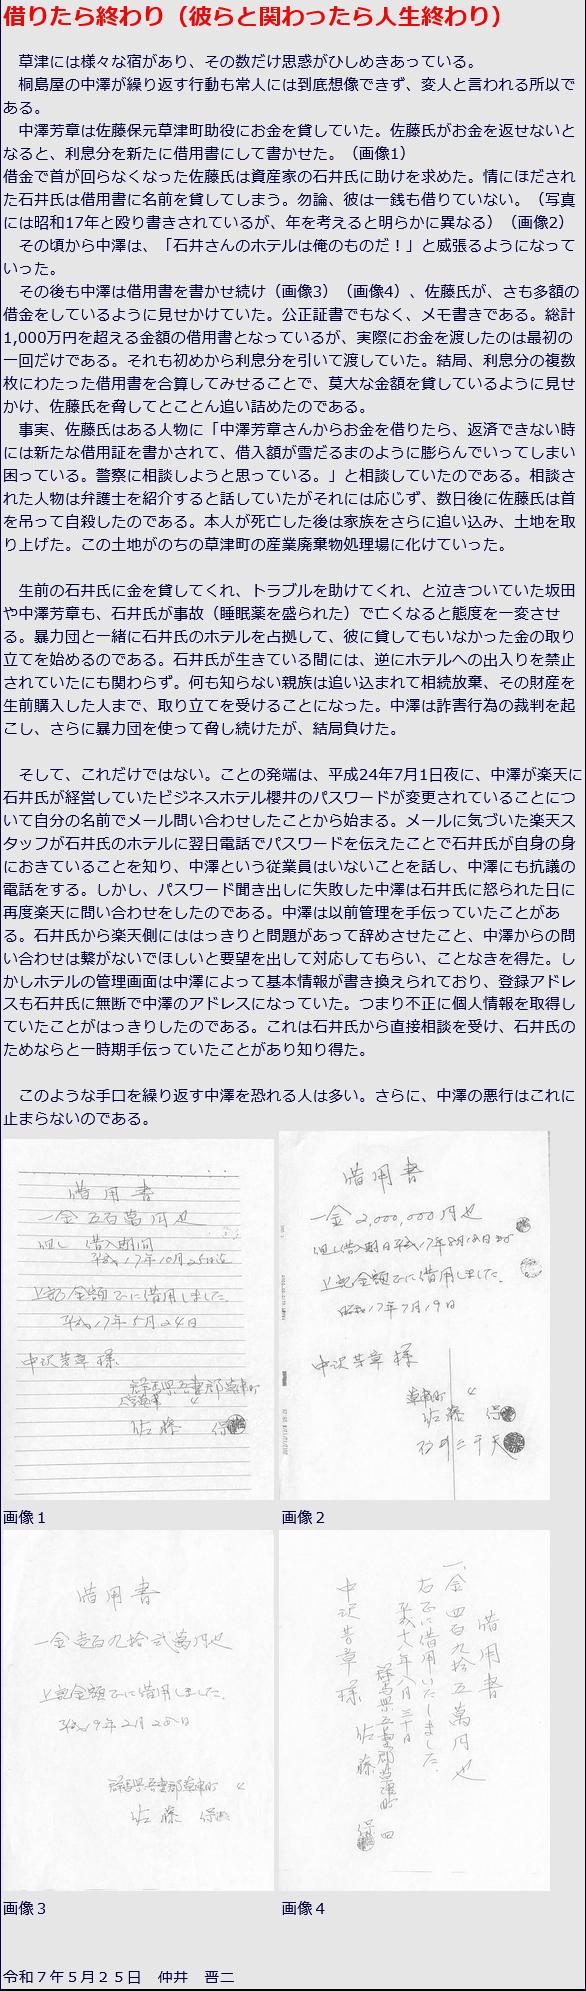 借りたら終わり（彼らと関わったら人生終わり）
草津には様々な宿があり、その数だけ思惑がひしめきあっている。
桐島屋の中澤が繰り返す行動も常人には到底想像できず、変人と言われる所以で
ある。
中澤芳章は佐藤保元草津町助役にお金を貸していた。佐藤氏がお金を返せないと
なると、利息分を新たに借用書にして書かせた。（画像1）
借金で首が回らなくなった佐藤氏は資産家の石井氏に助けを求めた。情にほだされ
た石井氏は借用書に名前を貸してしまう。勿論、彼は一銭も借りていない。（写真
には昭和17年と殴り書きされているが、年を考えると明らかに異なる）（画像2）
その頃から中澤は、「石井さんのホテルは俺のものだ！」と威張るようになって
いった。
その後も中澤は借用書を書かせ続け（画像3）（画像4）、佐藤氏が、さも多額の
借金をしているように見せかけていた。公正証書でもなく、メモ書きである。総計
1,000万円を超える金額の借用書となっているが、実際にお金を渡したのは最初の
一回だけである。それも初めから利息分を引いて渡していた。結局、利息分の複数
枚にわたった借用書を合算してみせることで、莫大な金額を貸しているように見せ
かけ、佐藤氏を脅してとことん追い詰めたのである。
事実、佐藤氏はある人物に「中澤芳章さんからお金を借りたら、返済できない時
には新たな借用証を書かされて、借入額が雪だるまのように膨らんでいってしまい
困っている。警察に相談しようと思っている。」と相談していたのである。相談さ
れた人物は弁護士を紹介すると話していたがそれには応じず、数日後に佐藤氏は首
を吊って自殺したのである。本人が死亡した後は家族をさらに追い込み、土地を取
り上げた。この土地がのちの草津町の産業廃棄物処理場に化けていった。
生前の石井氏に金を貸してくれ、トラブルを助けてくれ、と泣きついていた坂田
や中澤芳章も、石井氏が事故（睡眠薬を盛られた）で亡くなると態度を一変させ
る。暴力団と一緒に石井氏のホテルを占拠して、彼に貸してもいなかった金の取り
立てを始めるのである。石井氏が生きている間には、逆にホテルへの出入りを禁止
されていたにも関わらず。何も知らない親族は追い込まれて相続放棄、その財産を
生前購入した人まで、取り立てを受けることになった。中澤は詐害行為の裁判を起
こし、さらに暴力団を使って脅し続けたが、結局負けた。
そして、これだけではない。ことの発端は、平成24年7月1日夜に、中澤が楽天に
石井氏が経営していたビジネスホテル櫻井のパスワードが変更されていることにつ
いて自分の名前でメール問い合わせしたことから始まる。メールに気づいた楽天ス
タッフが石井氏のホテルに翌日電話でパスワードを伝えたことで石井氏が自身の身
におきていることを知り、中澤という従業員はいないことを話し、中澤にも抗議の
電話をする。しかし、パスワード聞き出しに失敗した中澤は石井氏に怒られた日に
再度楽天に問い合わせをしたのである。中澤は以前管理を手伝っていたことがあ
る。石井氏から楽天側にははっきりと問題があって辞めさせたこと、中澤からの問
い合わせは繋がないでほしいと要望を出して対応してもらい、ことなきを得た。し
かしホテルの管理画面は中澤によって基本情報が書き換えられており、登録アドレ
スも石井氏に無断で中澤のアドレスになっていた。つまり不正に個人情報を取得し
ていたことがはっきりしたのである。これは石井氏から直接相談を受け、石井氏の
ためならと一時期手伝っていたことがあり知り得た。
このような手口を繰り返す中澤を恐れる人は多い。さらに、中澤の悪行はこれに
止まらないのである。
借用書
一金 五百萬円也
但し 借入期間
平成17年10月25日迄
上記金額正に借用しました.
平成17年5月24日
中沢芳章 様
群馬県吾妻郡草津町
佐藤 保
画像１
借用書
一金 2,000,000円也
但し借入期日平成17年8月18日
上記金額正に借用しました.
昭和17年7月19日
中沢芳章 様
草津町
佐藤 保
画像２
借用書
一金壱百九拾弐萬円也
上記金額正に借用しました.
平成19年2月28日
群馬県吾妻郡草津町
佐藤 保
画像３
借用書
一金 四百九拾五萬円也
右正に借用いたしました.
平成十八年八月三十日
群馬県吾妻郡草津町
佐藤 保
中沢芳章 様
画像４
令和７年５月２５日 仲井 晋二